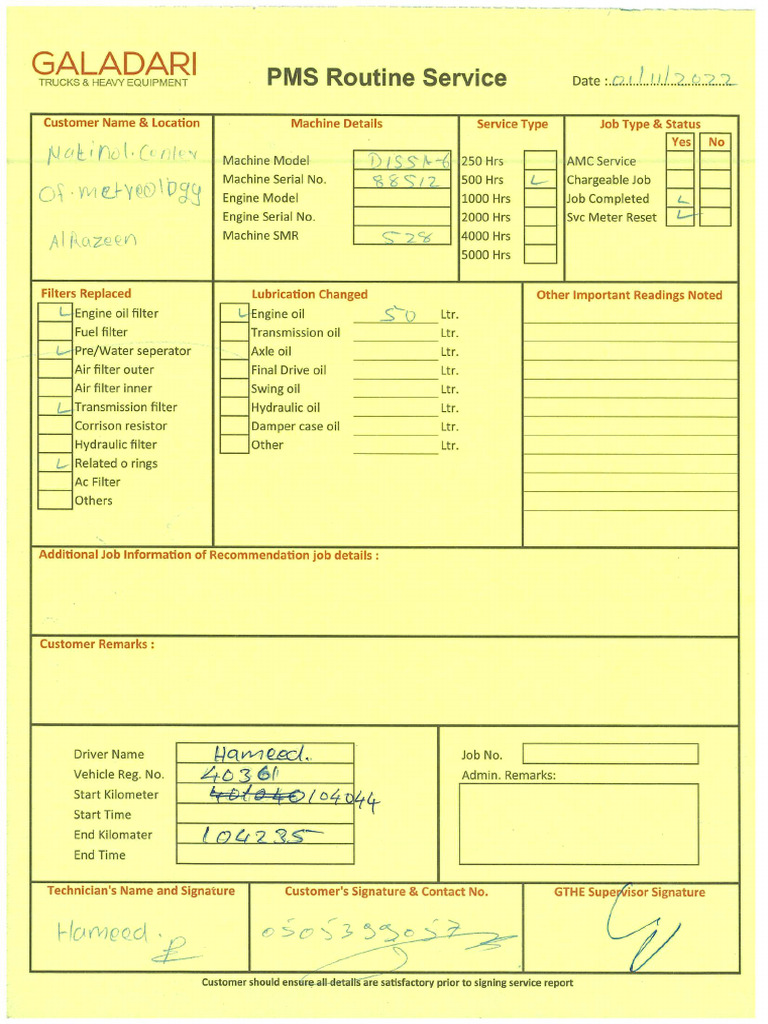 GALADARI
TRUCKS & HEAVY EQUIPMENT
PMS Routine Service
Date : 01/11/2022
Customer Name & Location
Natinol.Center
Of.metreology
AlRazeen
Machine Details
Machine Model D155A-6
Machine Serial No. 88512
Engine Model
Engine Serial No.
Machine SMR 528
Service Type
250 Hrs
500 Hrs
1000 Hrs
2000 Hrs
4000 Hrs
5000 Hrs
Job Type & Status
Yes No
AMC Service
Chargeable Job
Job Completed
Svc Meter Reset
Filters Replaced
Engine oil filter
Fuel filter
Pre/Water seperator
Air filter outer
Air filter inner
Transmission filter
Corrison resistor
Hydraulic filter
Related o rings
Ac Filter
Others
Lubrication Changed
Engine oil 50 Ltr.
Transmission oil Ltr.
Axle oil Ltr.
Final Drive oil Ltr.
Swing oil Ltr.
Hydraulic oil Ltr.
Damper case oil Ltr.
Other Ltr.
Other Important Readings Noted
Additional Job Information of Recommendation job details :
Customer Remarks :
Driver Name Hameed.
Vehicle Reg. No. 40361
Start Kilometer 104044
Start Time
End Kilomater 104235
End Time
Job No.
Admin. Remarks:
Technician's Name and Signature
Hameed.
Customer's Signature & Contact No.
0505399057
GTHE Supervisor Signature
Customer should ensure all details are satisfactory prior to signing service report